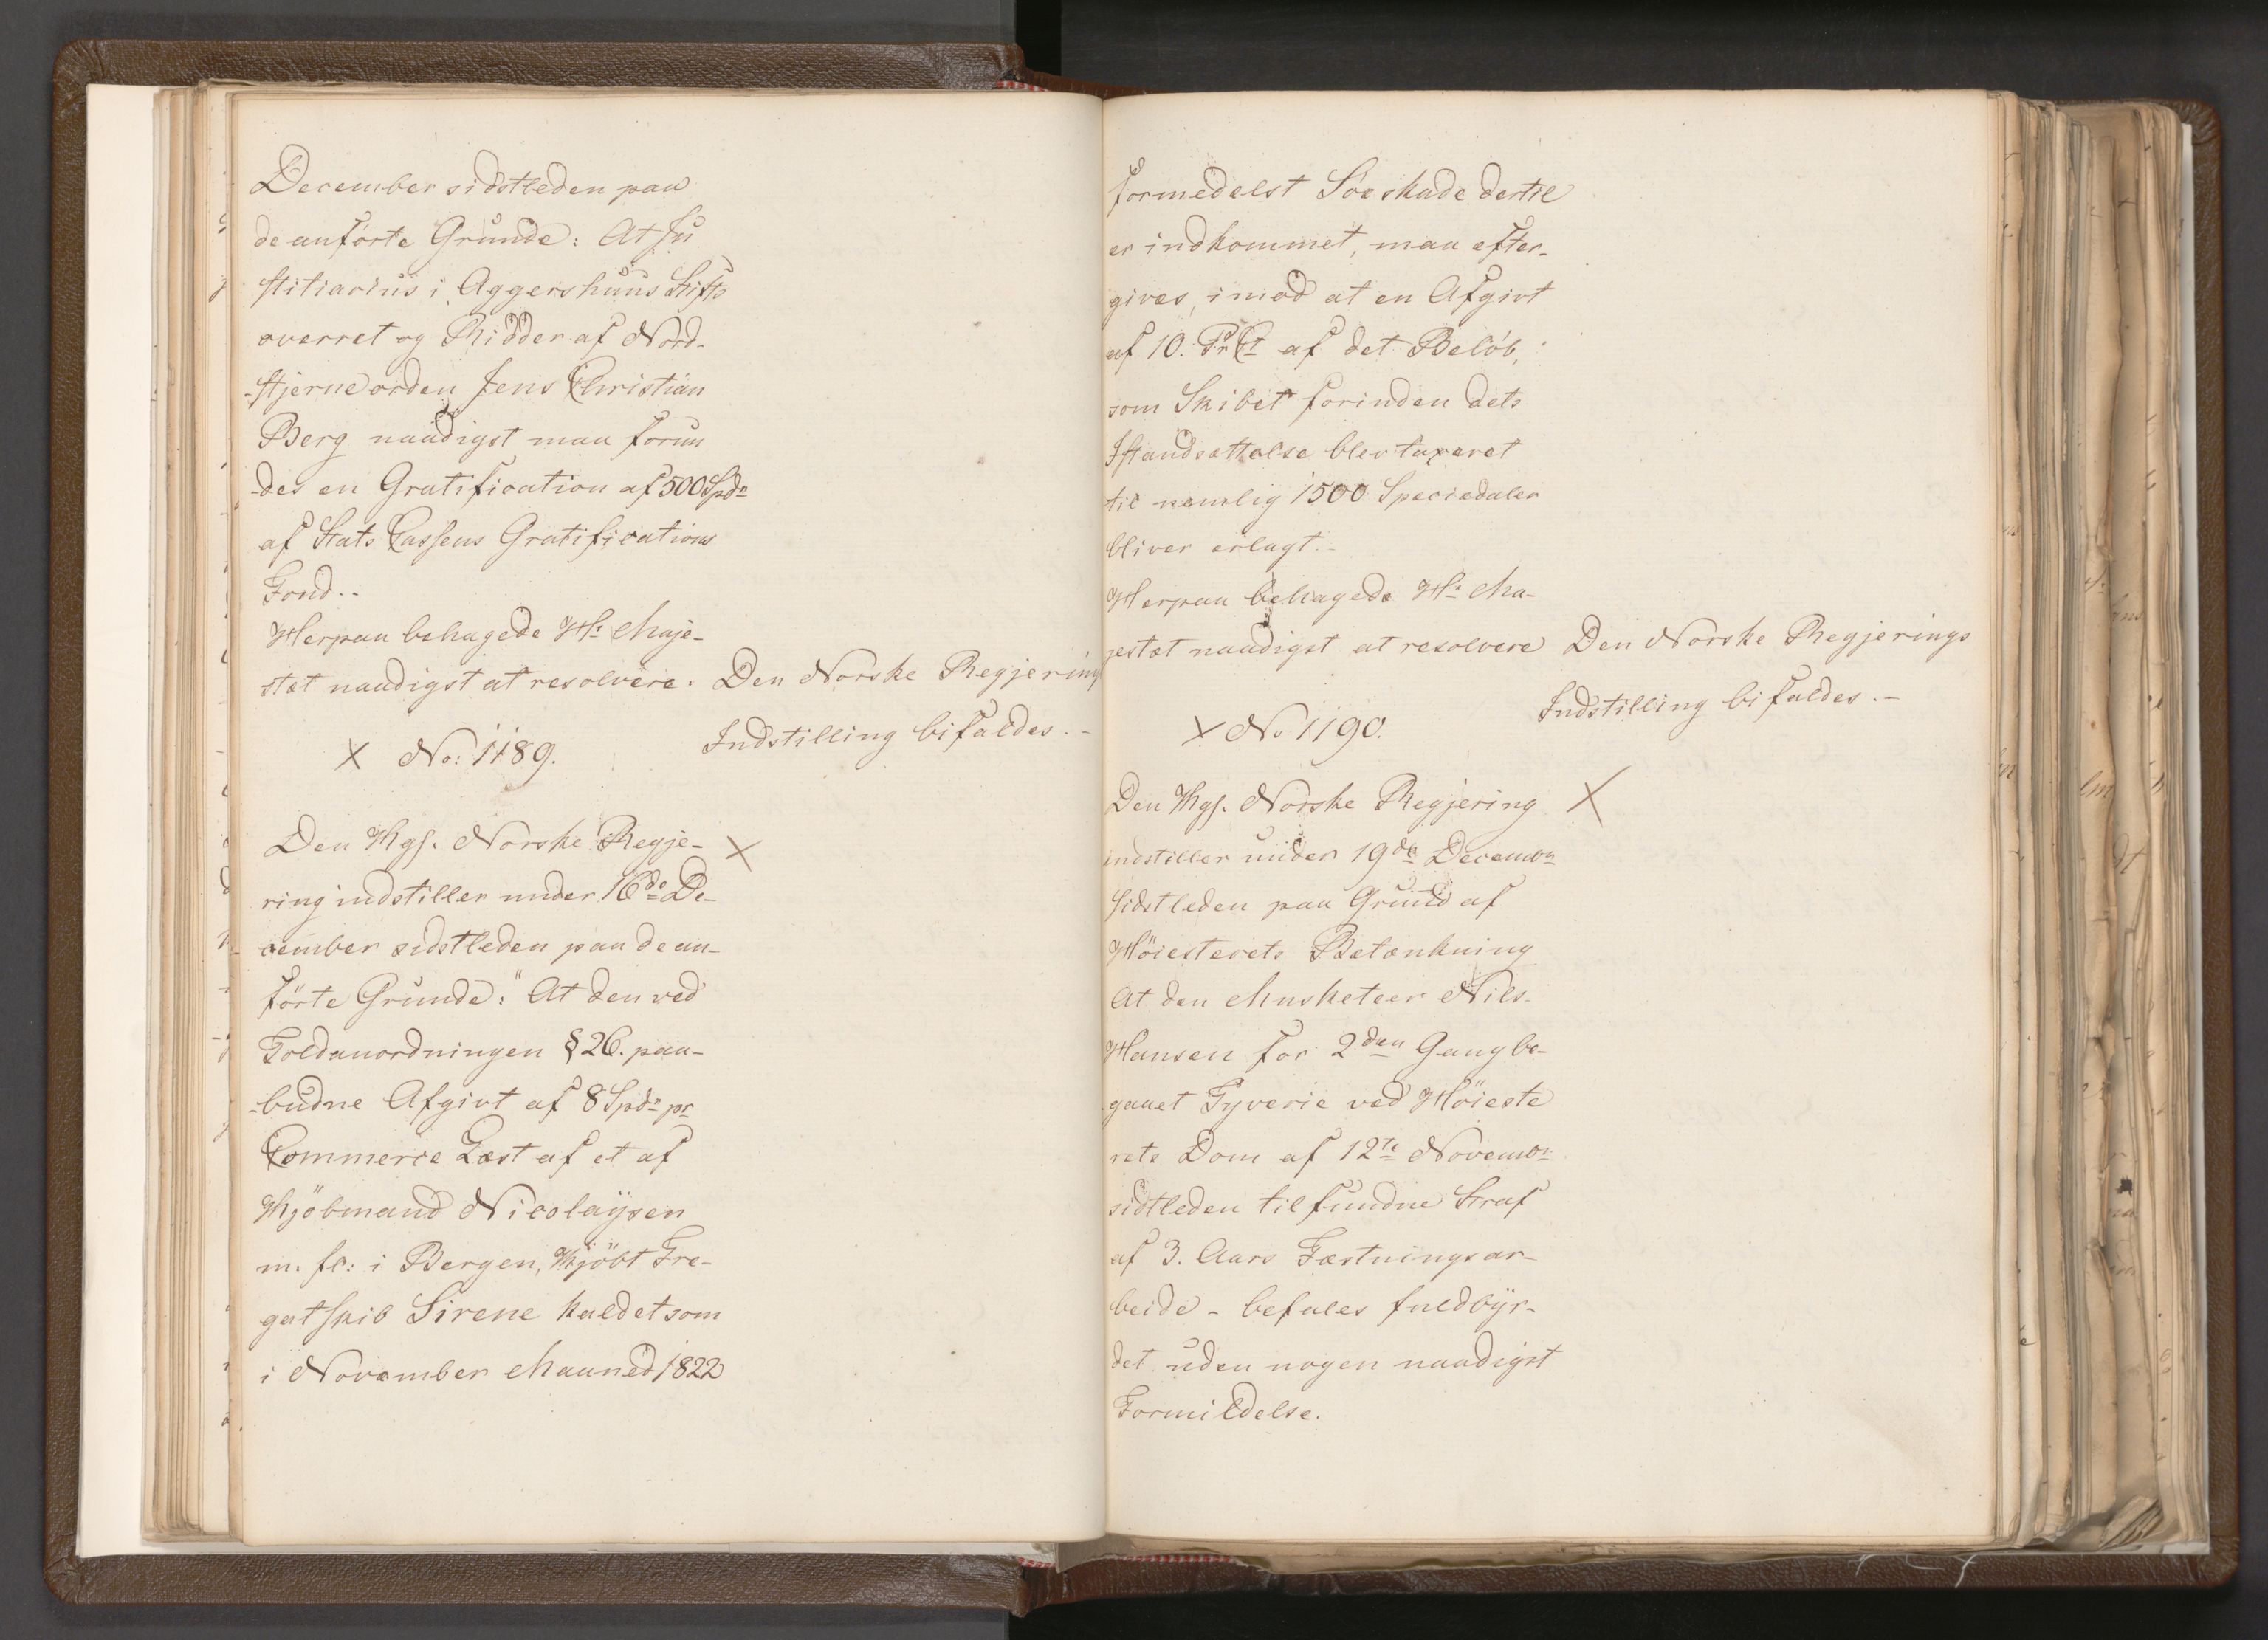 December sidstleden paa
de anförte Grunde: At Ju
stitiarius i Aggershuus Stifts
overret og Ridder af Nord-
-stjerneorden Jens Christian
Berg naadigst maa forun
-des en Gratification af 500 Spdr
af Stats Cassens Gratifications
Fond..
Herpaa behagede Hs Maje-
stæt naadigst at resolvere. Den Norske Regjering
Indstilling bifaldes.-
X No: 1189.
Den Kgl. Norske Regje- X
ring indstiller under 16de De-
cember sidstleden paa de an-
förte Grunde:" At den ved
Toldanordningen § 26. paa-
-budne Afgivt af 8 Spdr pr
Commerce Læst af et af
Kjöbmand Nicolaÿsen
m: fl: i Bergen, Kjöbt Fre-
gatskib Sirene kaldet som
i November Maaned 1822
formedelst Söeskade dertil
er indkommet, maa efter-
gives, imod at en Afgivt
af 10. Pr Ct af det Belöb,
som Skibet forinden dets
Istandsættelse blev taxeret
til nemlig 1500 Speciedaler
bliver erlagt.-
Herpaa behagede Hs Ma-
jestæt naadigst at resolvere Den Norske Regjerings
Indstilling bifaldes.-
X No 1190.
Den Kgl. Norske Regjering X
indstiller under 19de Decembr
sidstleden paa Grund af
Höiesterets Betænkning
At den Musketeer Nils
Hansen for 2den Gang be-
gaaet Tyverie ved Höieste
rets Dom af 12te Novembr
sidtleden tilfundne Straf
af 3. Aars Fæstningsar-
beide - befales fuldbÿr-
det uden nogen naadigst
Formildelse.